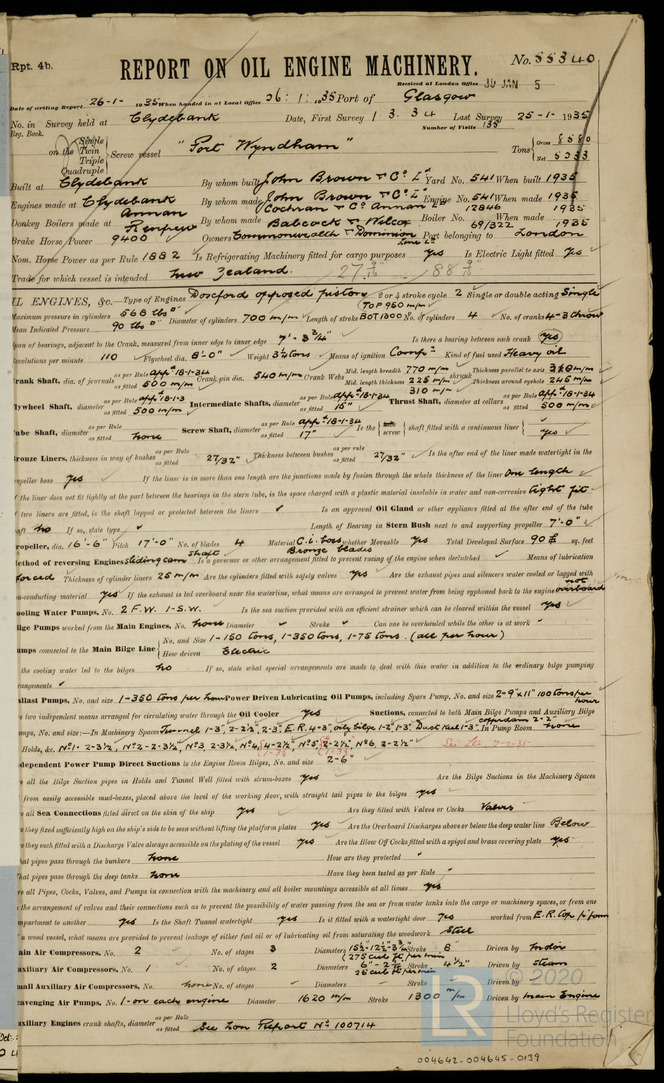 Rpt. 4b.
No. 55340
REPORT ON OIL ENGINE MACHINERY.
Received at London Office 30 JAN 5
Date of writing Report 26-1-1935 When handed in at Local Office 26:1:1935 Port of Glasgow
No. in Survey held at Clydebank Date, First Survey 1.3.34 Last Survey 25-1-1935
Reg. Book. Number of Visits 135
on the Single Twin Triple Quadruple Screw vessel "Port Wyndham" Tons Gross 8580 Net
Built at Clydebank By whom built John Brown & Co Ld Yard No. 541 When built 1935
Engines made at Clydebank By whom made John Brown & Co Ld Engine No. 541 When made 1935
Annan Cochran & Co Annan Ld 12846
Donkey Boilers made at Renfrew By whom made Babcock & Wilcox Boiler No. 69/322 When made 1935
Brake Horse Power 9400 Owners Commonwealth & Dominion Line Ld Port belonging to London
Nom. Horse Power as per Rule 1882 Is Refrigerating Machinery fitted for cargo purposes Yes Is Electric Light fitted Yes
Trade for which vessel is intended New Zealand.
IL ENGINES, &c. Type of Engines Doxford opposed piston 2 or 4 stroke cycle 2 Single or double acting Single
Maximum pressure in cylinders 568 lbs Diameter of cylinders 700 m/m Length of stroke TOP 950 m/m BOT 1300 No. of cylinders 4 No. of cranks 4-3 throw
Mean Indicated Pressure 90 lbs
pan of bearings, adjacent to the Crank, measured from inner edge to inner edge 7'-8¾" Is there a bearing between each crank yes
evolutions per minute 110 Flywheel dia. 8'-0" Weight 3½ tons Means of ignition Compn Kind of fuel used Heavy oil
Crank Shaft, dia. of journals as per Rule App 18-1-34 as fitted 500 m/m Crank pin dia. 540 m/m Crank Webs Mid. length breadth 770 m/m Mid. length thickness 225 m/m shrunk Thickness parallel to axis 310 m/m Thickness around eyehole 245 m/m
310 m/m
lywheel Shaft, diameter as per Rule App 18-1-3 as fitted 500 m/m Intermediate Shafts, diameter as per Rule App 18-1-34 as fitted 15" Thrust Shaft, diameter at collars as per Rule App 18-1-34 as fitted 500 m/m
ube Shaft, diameter as per Rule as fitted none Screw Shaft, diameter as per Rule App 18-1-34 as fitted 17" Is the tube screw shaft fitted with a continuous liner yes
ronze Liners, thickness in way of bushes as per Rule as fitted 27/32" Thickness between bushes as per rule as fitted 27/32" Is the after end of the liner made watertight in the
ropeller boss yes If the liner is in more than one length are the junctions made by fusion through the whole thickness of the liner One length
f the liner does not fit tightly at the part between the bearings in the stern tube, is the space charged with a plastic material insoluble in water and non-corrosive tight fit
f two liners are fitted, is the shaft lapped or protected between the liners Is an approved Oil Gland or other appliance fitted at the after end of the tube
haft no If so, state type Length of Bearing in Stern Bush next to and supporting propeller 7'-0"
ropeller, dia. 16'-6" Pitch 17'-0" No. of blades 4 Material C.i. boss Bronze blades whether Moveable Yes Total Developed Surface 90 sq. feet
ethod of reversing Engines Sliding cam shaft Is a governor or other arrangement fitted to prevent racing of the engine when declutched Means of lubrication
forced Thickness of cylinder liners 25 m/m Are the cylinders fitted with safety valves yes Are the exhaust pipes and silencers water cooled or lagged with
on-conducting material yes If the exhaust is led overboard near the waterline, what means are arranged to prevent water from being syphoned back to the engine not overboard
ooling Water Pumps, No. 2 F.W. 1-S.W. Is the sea suction provided with an efficient strainer which can be cleared within the vessel yes
ilge Pumps worked from the Main Engines, No. none Diameter Stroke Can one be overhauled while the other is at work
umps connected to the Main Bilge Line No. and Size 1-150 tons, 1-350 tons, 1-75 tons. (all per hour)
How driven Electric
the cooling water led to the bilges no If so, state what special arrangements are made to deal with this water in addition to the ordinary bilge pumping
rangements
allast Pumps, No. and size 1-350 tons per hour Power Driven Lubricating Oil Pumps, including Spare Pump, No. and size 2-9"x11" 100 tons per hour
re two independent means arranged for circulating water through the Oil Cooler Yes Suctions, connected to both Main Bilge Pumps and Auxiliary Bilge
umps, No. and size:—In Machinery Spaces Tunnel 1-3", 2-2½", 2-3" E.R. 4-3", oily bilge 1-2", 1-3" Duct Keel 1-3" cofferdam 2-2" In Pump Room none
Holds, &c. No 1. 2-3½", No 2. 2-2. 3½", No 3, 2-3½", No 4 4-2½", No 5, 2-2½", No 6, 2-2½"
ndependent Power Pump Direct Suctions to the Engine Room Bilges, No. and size 2-6"
re all the Bilge Suction pipes in Holds and Tunnel Well fitted with strum-boxes yes Are the Bilge Suctions in the Machinery Spaces
from easily accessible mud-boxes, placed above the level of the working floor, with straight tail pipes to the bilges yes
re all Sea Connections fitted direct on the skin of the ship yes Are they fitted with Valves or Cocks Valves
re they fixed sufficiently high on the ship's side to be seen without lifting the platform plates yes Are the Overboard Discharges above or below the deep water line Below
re they each fitted with a Discharge Valve always accessible on the plating of the vessel yes Are the Blow Off Cocks fitted with a spigot and brass covering plate yes
hat pipes pass through the bunkers none How are they protected
hat pipes pass through the deep tanks none Have they been tested as per Rule
re all Pipes, Cocks, Valves, and Pumps in connection with the machinery and all boiler mountings accessible at all times yes
s the arrangement of valves and their connections such as to prevent the possibility of water passing from the sea or from water tanks into the cargo or machinery spaces, or from one
ompartment to another yes Is the Shaft Tunnel watertight yes Is it fitted with a watertight door yes worked from E.R. top p'form
f a wood vessel, what means are provided to prevent leakage of either fuel oil or of lubricating oil from saturating the woodwork Steel
ain Air Compressors, No. 2 No. of stages 3 Diameters 15½"-12½"-3¾" (275 cub. ft. per min Stroke 8" Driven by motor
uxiliary Air Compressors, No. 1 No. of stages 2 Diameters 6"-2½" 25 cub ft per min Stroke 4½" Driven by steam
mall Auxiliary Air Compressors, No. none No. of stages Diameters Stroke Driven by
cavenging Air Pumps, No. 1-on each engine Diameter 1620 m/m Stroke 1300 m/m Driven by main Engine
uxiliary Engines crank shafts, diameter as per Rule as fitted See Lon Report No 100714
© 2020
LR Lloyd's Register
Foundation
004642-004645-0139